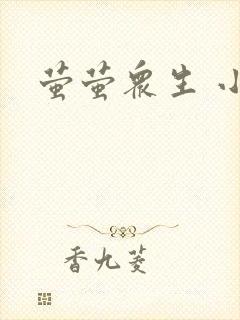 萤萤众生 小
香九菱